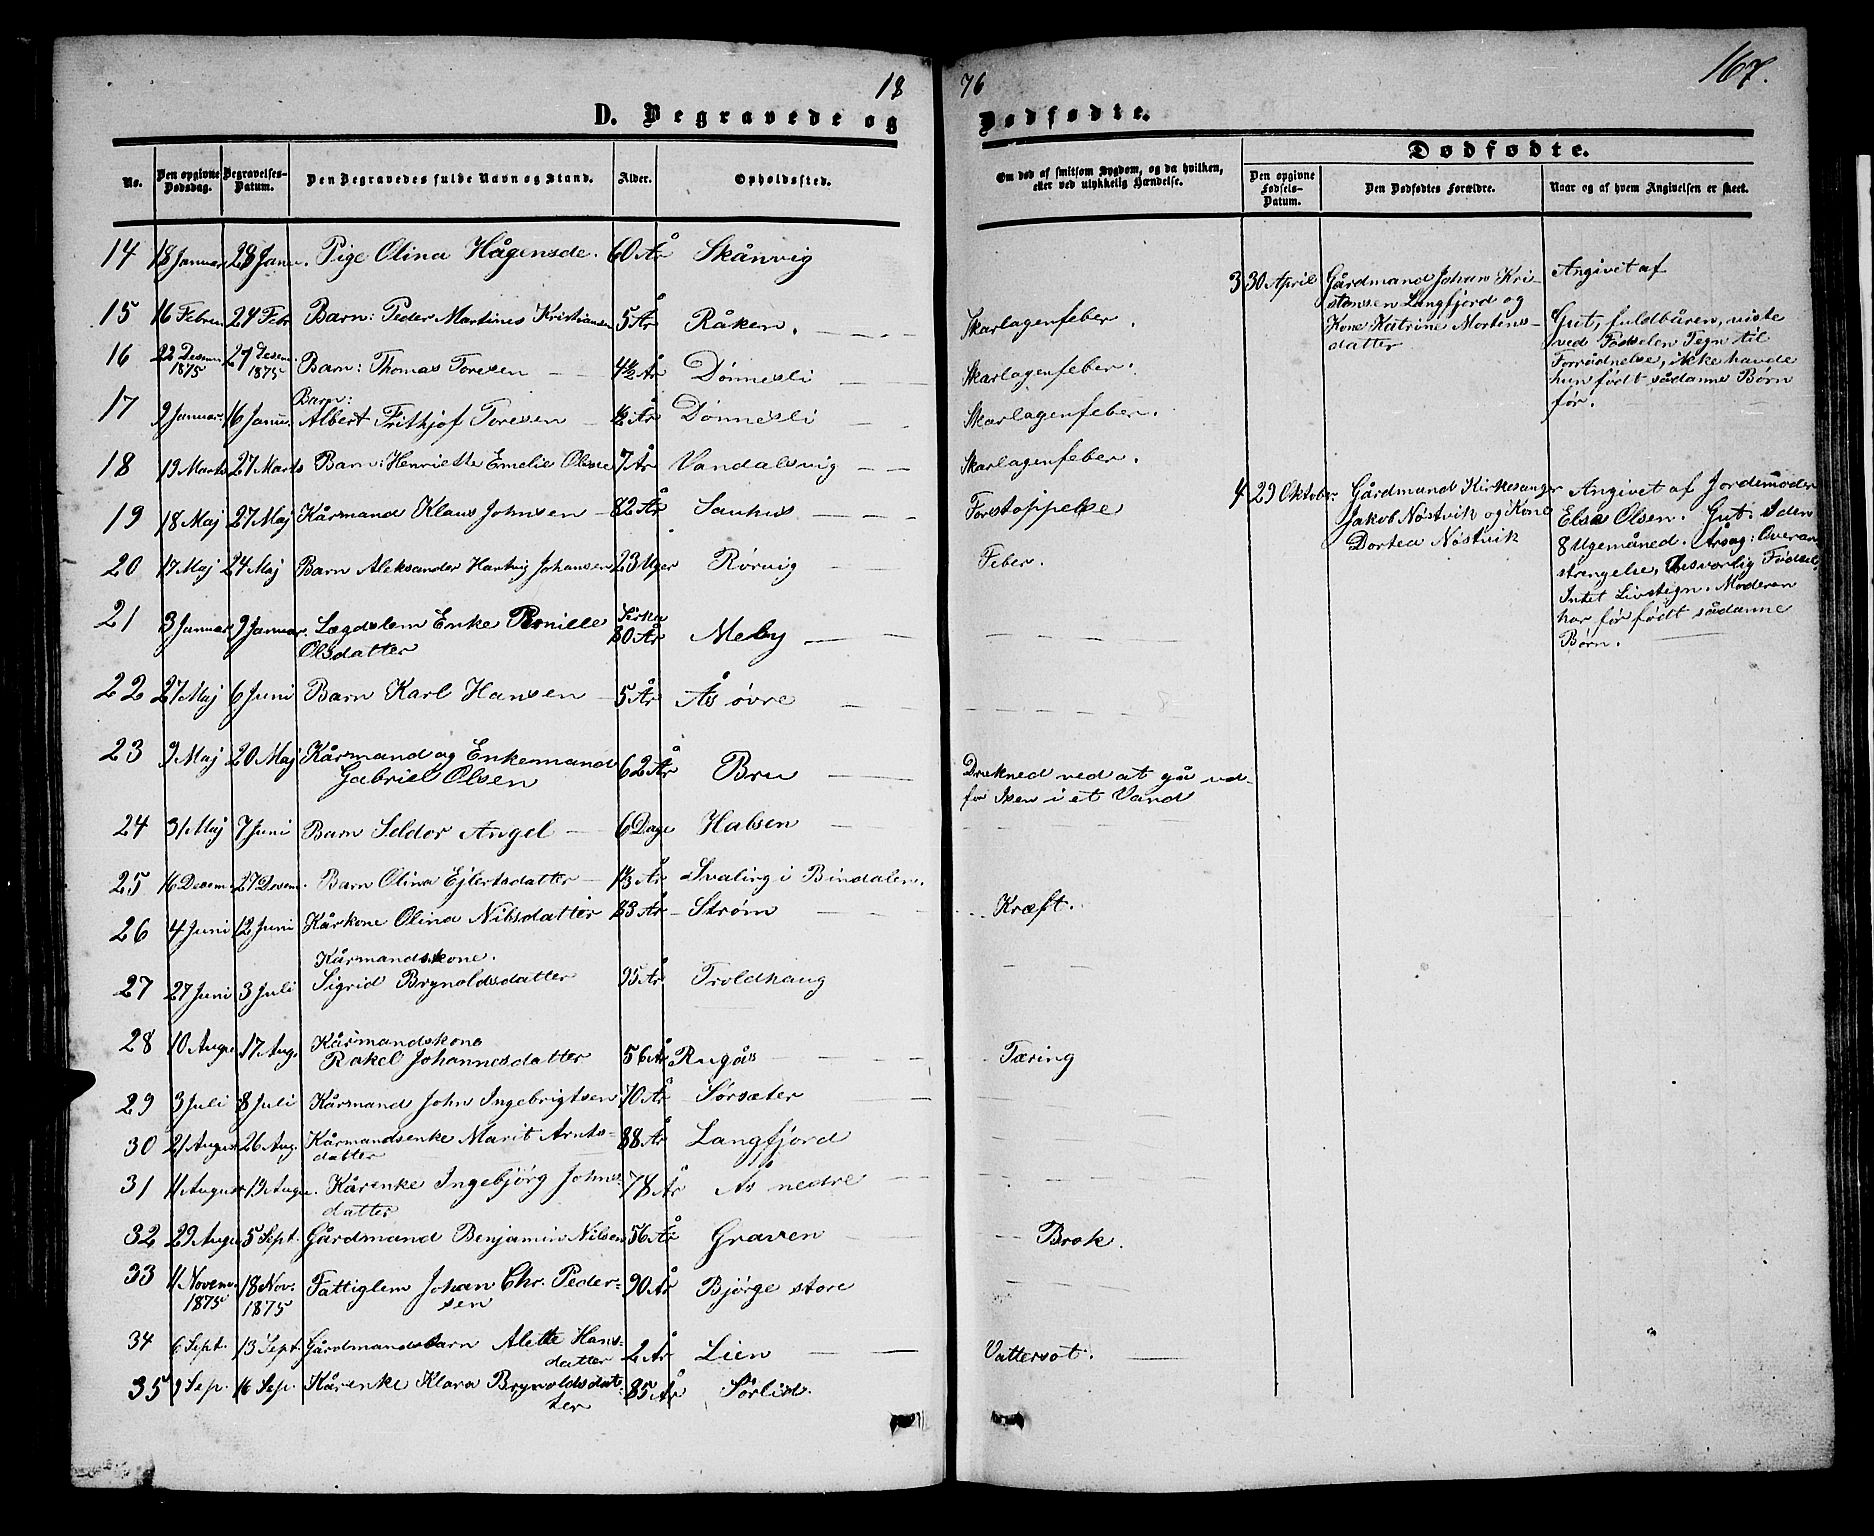 18 76
167.
D. Begravede og Dødfødte.
Dødfødte.
No.
Den opgivne Dødsdag.
Begravelses-Datum.
Den Begravedes fulde Navn og Stand.
Alder.
Opholdssted.
Om død af smitsom Sygdom, og da hvilken, eller ved ulykkelig Hændelse.
Den opgivne Fødsels-Datum.
Den Dødfødtes Forældre.
Naar og af hvem Angivelsen er skeet.
14 18 Januar 28 Janu. Pige Olina Hågensde. 60 År Skånvig
15 16 Febru 24 Febr Barn: Peder Martines Kristiansen 5 År Råken. Skarlagenfeber.
16 22 Desem 1875 27 Desem 1875 Barn: Thomas Toresen 4½ År Dønnesli Skarlagenfeber.
17 9 Januar. 16 Janu. Barn: Albert Frithjof Toresen ½ År Dønnesli Skarlagenfeber.
18 19 Marts 27 Marts Barn: Henriette Emelie Olsen 7 År Vandalsvig Skarlagenfeber.
19 18 Maj 27 Maj Kårmand Klaus Johnsen 82 År Sanhus Forstoppelse
20 17 Maj 24 Maj Barn Aleksander Hartvig Johansen 23 Uger Rørvig Feber.
21 3 Januar 9 Januar. Lægdslem Enke Pernille Olsdatter Sirka 80 År Meby
22 27 Maj 6 Juni Barn Karl Hansen 5 År Ås øvre
23 9 Maj 20 Maj Kårmand og Enkemand Gabriel Olsen 62 År Bru Drukned ved at gå ud-
for Isen i et Vand
24 31 Maj 7 Juni Barn Seldor Angel 6 Dage Halsen
25 16 Desem. 27 Desem. Barn Olina Ejlertsdatter 1⅓ År Svaling i Bindalen.
26 4 Juni 12 Juni Kårkone Olina Nilsdatter 83 År Strøm Kræft.
27 27 Juni 3 Juli Kårmandskone. Sigrid Brynoldsdatter 95 År Troldhaug
28 10 Augu 17 Aug. Kårmandskone Rakel Johannesdatter 56 År Rugås Tæring
29 3 Juli 8 Juli Kårmand John Ingebrigtsen 70 År Sørsæter
30 21 August 26 Aug. Kårmandsenke Marit Arnts-
datter 88 År Langfjord
31 11 August 19 Augu. Kårenke Ingebjörg Johns
datter 78 År Ås nedre
32 29 Augu 5 Sept. Gårdmand Benjamin Nilsen 56 År Graven Brok.
33 11 Novem. 1875 18 Nov. 1875 Fattiglem Johan Chr. Peder-
sen 90 År Bjørge store
34 6 Sept. 13 Sept. Gårdmandsbarn Alette Hans-
datter 2 År Lien Vattersot.
35 9 Sep. 16 Sep. Kårenke Klara Brynoldsdat-
ter 85 År Sørlid.
3 30 April Gårdmand Johan Kri-
stensen Langfjord og
Kone Katrine Mortens-
datter
Angivet af
Gut, fuldbåren, viste
ved Fødselen Tegn til
Forrådnelse, ikke havde
hun født sådanne Børn
før.
4 29 Oktober. Gårdmand Kirkesanger
Jakob Nøstvik og Kone
Dortea Nøstvik
Angivet af Jordemoder
Else Olsen. Gut: i den
8 Ugemåned. Årsag: Overan-
strengelse, besværlig Fødsel,
Intet Livstegn. Moderen
har før født sådanne
Børn.